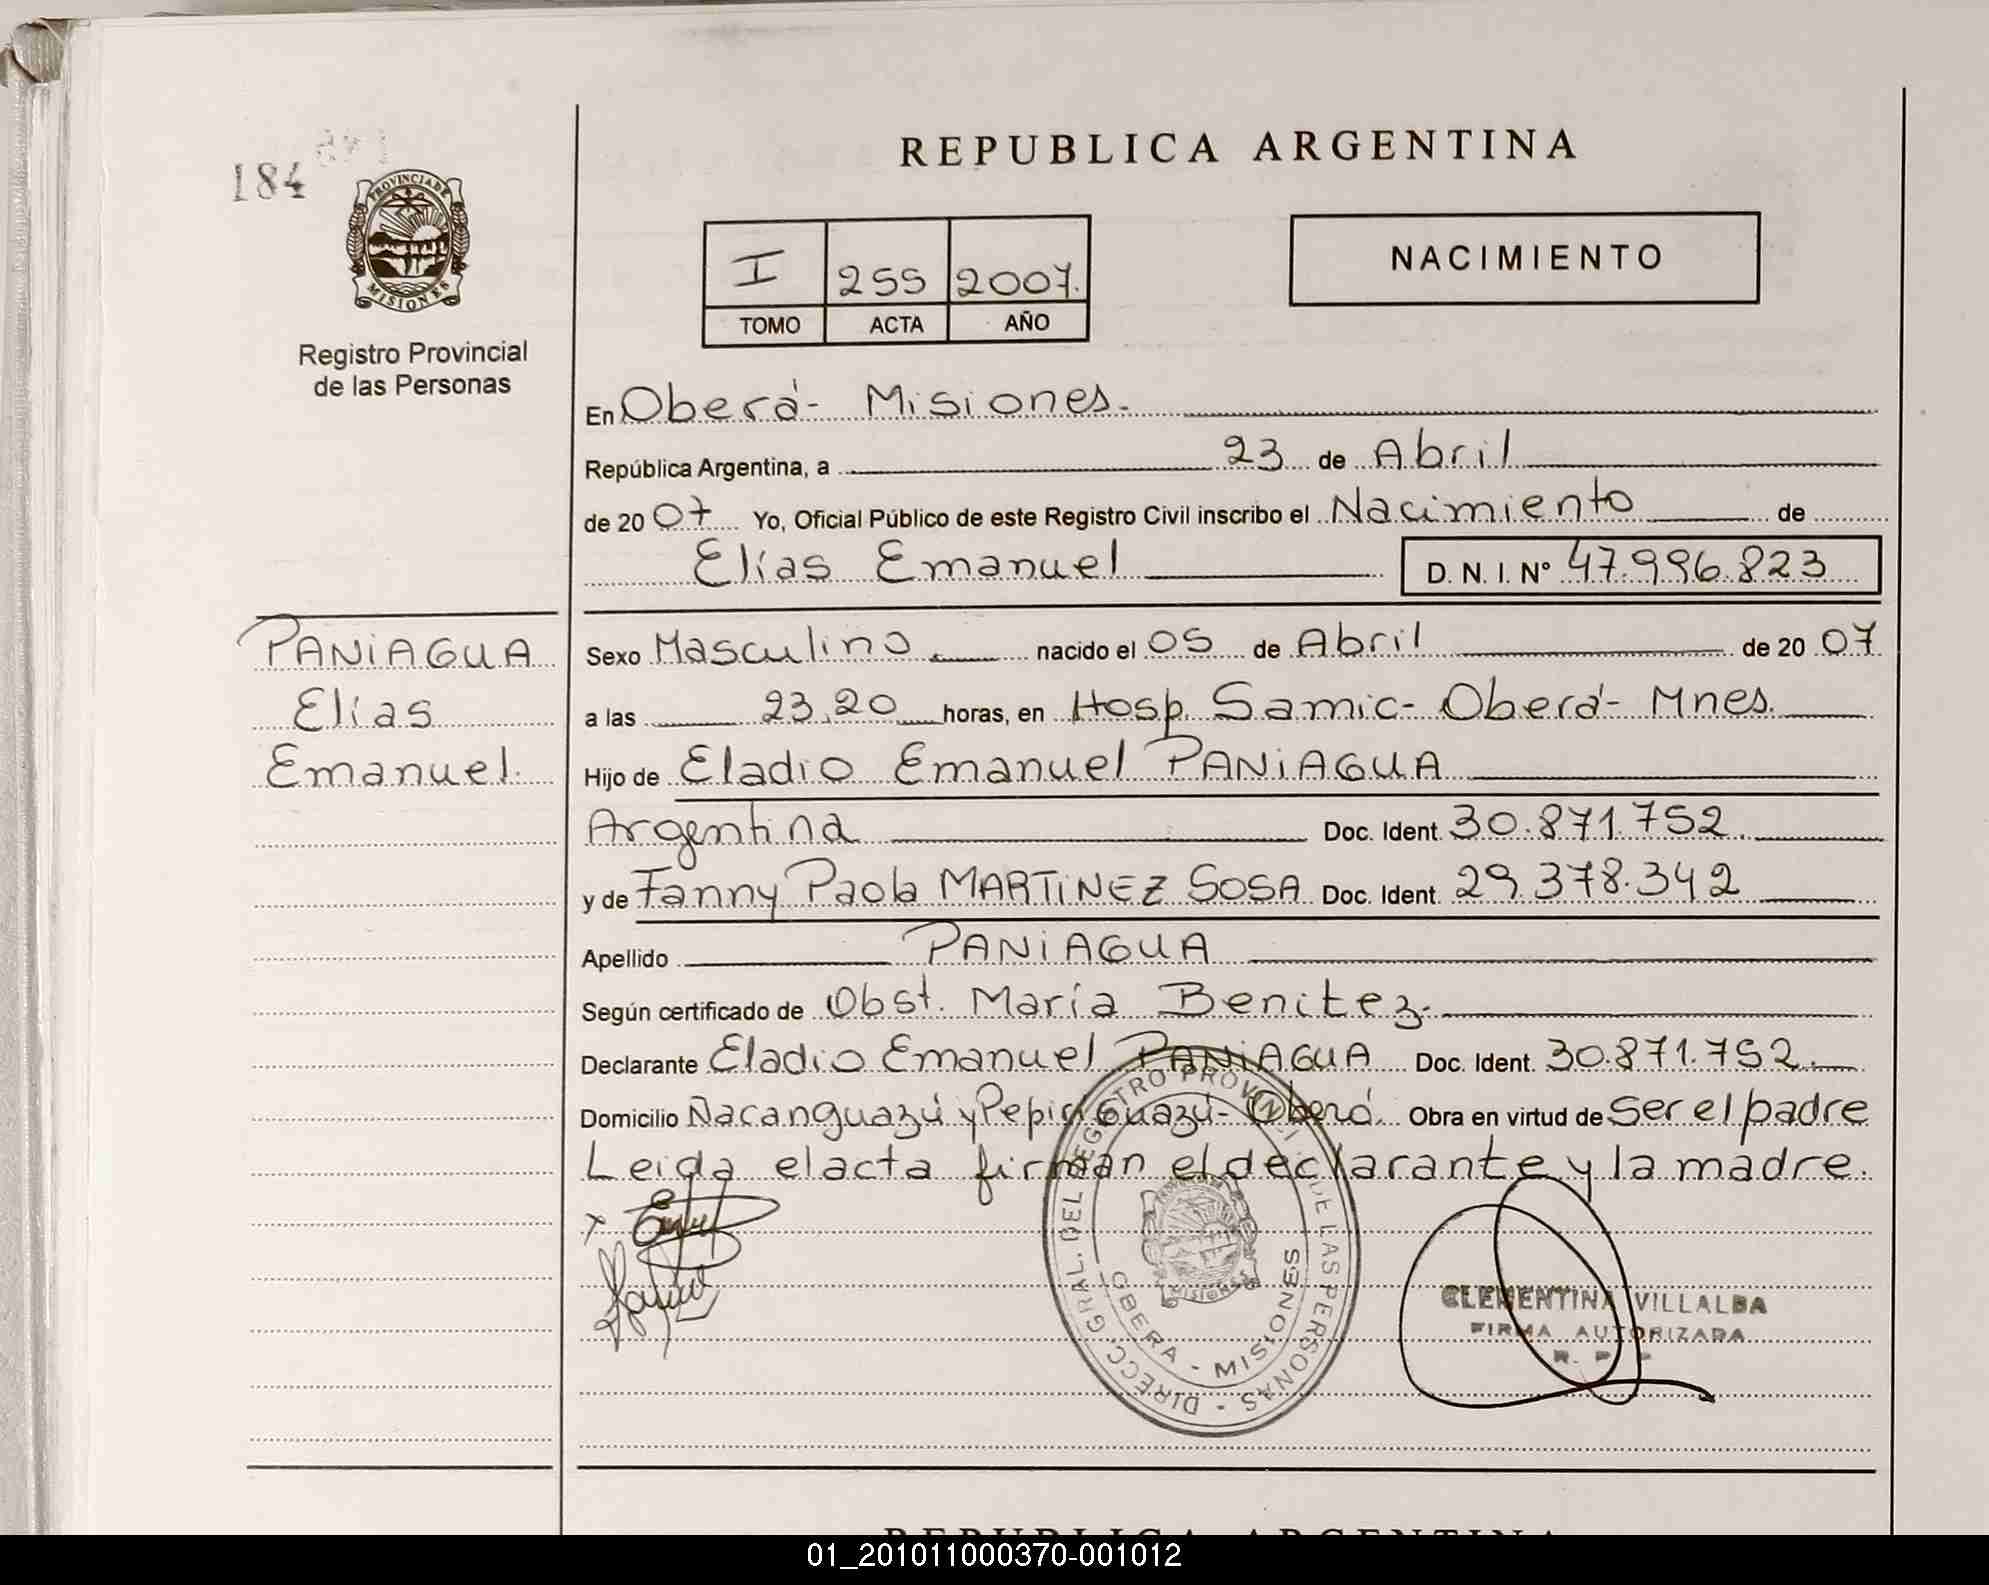 184
PROVINCIA DE
MISIONES
Registro Provincial
de las Personas
REPUBLICA ARGENTINA
I 255 2007.
TOMO ACTA AÑO
NACIMIENTO
En Oberá- Misiones.
República Argentina, a 23 de Abril
de 2007 Yo, Oficial Público de este Registro Civil inscribo el Nacimiento de
Elías Emanuel D. N. I. Nº 47.996.823
PANIAGUA
Elías
Emanuel.
Sexo Masculino nacido el 05 de Abril de 2007
a las 23,20 horas, en Hosp. Samic- Oberá- Mnes.
Hijo de Eladio Emanuel PANIAGUA
Argentina Doc. Ident. 30.871.752.
y de Fanny Paola MARTINEZ SOSA Doc. Ident. 29.378.342
Apellido PANIAGUA
Según certificado de Obst. María Benitez.
Declarante Eladio Emanuel PANIAGUA Doc. Ident. 30.871.752.
Domicilio Ñacanguazú y Pepiri Guazú- Oberá. Obra en virtud de Ser el padre
Leida el acta firman el declarante y la madre.
DIRECC. GRAL. DEL REGISTRO PROVINCIAL DE LAS PERSONAS -
OBERA - MISIONES
MISIONES
CLEMENTINA VILLALBA
FIRMA AUTORIZADA
REPUBLICA ARGENTINA
01_201011000370-001012